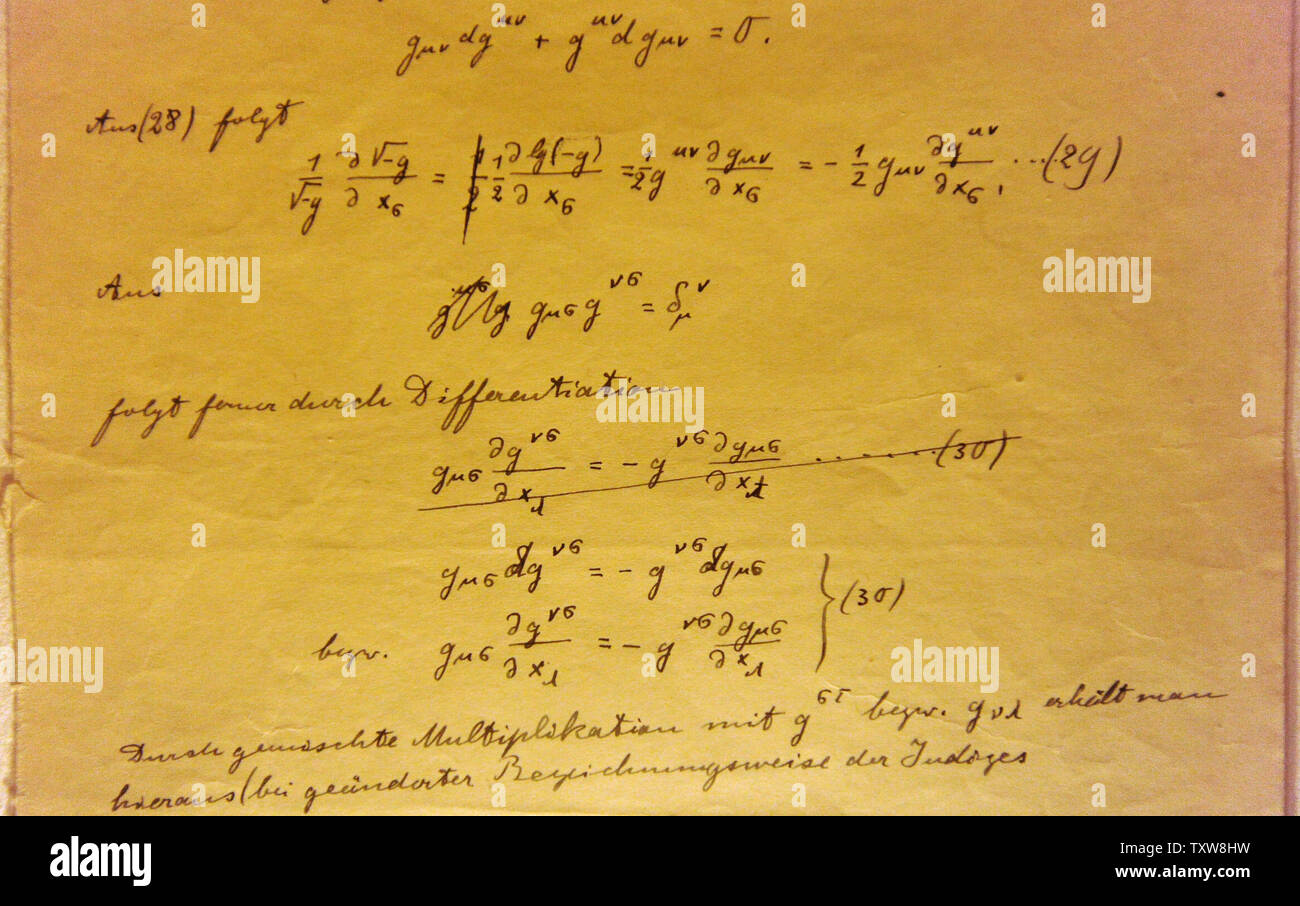 g_{μν} dg^{μν} + g^{μν} dg_{μν} = 0.
Aus (28) folgt
\frac{1}{\sqrt{-g}} \frac{∂\sqrt{-g}}{∂x_σ} = \frac{1}{2} \frac{∂ lg(-g)}{∂x_σ} = \frac{1}{2} g^{μν} \frac{∂g_{μν}}{∂x_σ} = - \frac{1}{2} g_{μν} \frac{∂g^{μν}}{∂x_σ}. ...(29)
Aus
g_{μσ} g^{νσ} = δ_μ^ν
folgt ferner durch Differentiation
g_{μσ} \frac{∂g^{νσ}}{∂x_λ} = - g^{νσ} \frac{∂g_{μσ}}{∂x_λ} ........(30)
g_{μσ} dg^{νσ} = - g^{νσ} dg_{μσ}
bezw. g_{μσ} \frac{∂g^{νσ}}{∂x_λ} = - g^{νσ} \frac{∂g_{μσ}}{∂x_λ} } (30)
Durch gemischte Multiplikation mit g^{στ} bezw. g_{νλ} erhält man
hieraus (bei geänderter Bezeichnungsweise der Indizes
a alamy
alamy
Image ID: TXW8HW
www.alamy.com